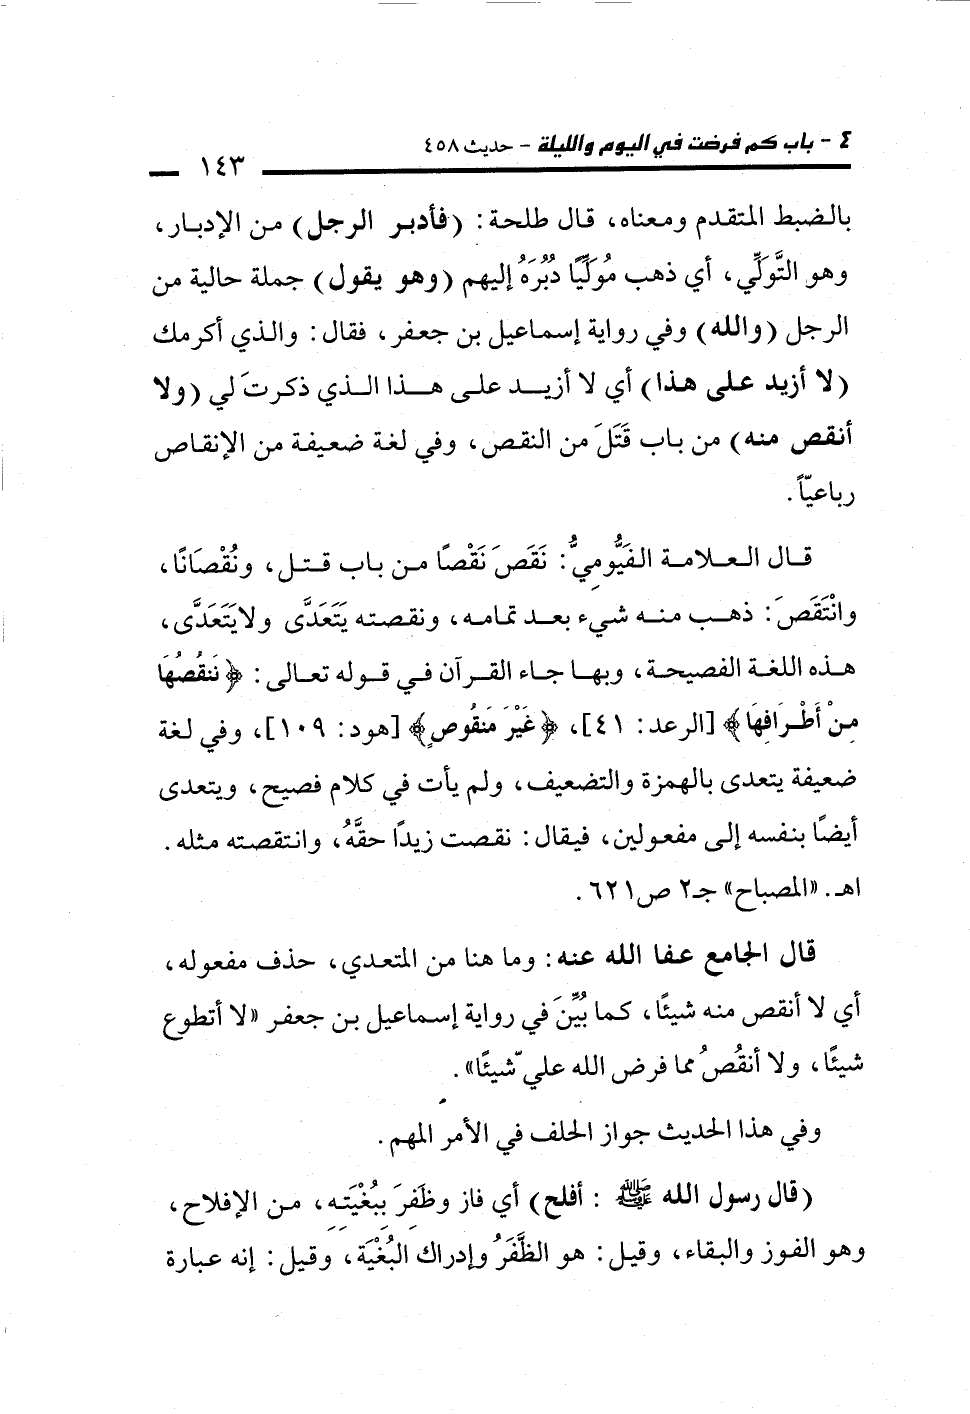 ٤ - باب كم فرضت في اليوم والليلة - حديث ٤٥٨
١٤٣
بالضبط المتقدم ومعناه، قال طلحة: (فأدبر الرجل) من الإدبار،
وهو التَّوَلِّي، أي ذهب مُوَلِّيًا دُبُرَهُ إليهم (وهو يقول) جملة حالية من
الرجل (والله) وفي رواية إسماعيل بن جعفر، فقال: والذي أكرمك
(لا أزيد على هذا) أي لا أزيد على هذا الذي ذكرتَ لي (ولا
أنقص منه) من باب قَتَلَ من النقص، وفي لغة ضعيفة من الإنقاص
رباعيّاً.
قال العلامة الفَيُّوميُّ: نَقَصَ نَقْصًا من باب قتل، ونُقْصَانًا،
وانْتَقَصَ: ذهب منه شيء بعد تمامه، ونقصته يَتَعَدَّى ولايَتَعَدَّى،
هذه اللغة الفصيحة، وبها جاء القرآن في قوله تعالى: ﴿نَنقُصُهَا
مِنْ أَطْرَافِهَا﴾ [الرعد: ٤١]، ﴿غَيْرَ مَنقُوصٍ﴾ [هود: ١٠٩]، وفي لغة
ضعيفة يتعدى بالهمزة والتضعيف، ولم يأت في كلام فصيح، ويتعدى
أيضًا بنفسه إلى مفعولين، فيقال: نقصت زيدًا حقَّهُ، وانتقصته مثله.
اهـ. «المصباح» جـ٢ ص٦٢١.
قال الجامع عفا الله عنه: وما هنا من المتعدي، حذف مفعوله،
أي لا أنقص منه شيئًا، كما بُيِّنَ في رواية إسماعيل بن جعفر «لا أتطوع
شيئًا، ولا أنقُصُ مما فرض الله عليّ شيئًا».
وفي هذا الحديث جواز الحلف في الأمر المهم.
(قال رسول الله ﷺ : أفلح) أي فاز وظَفِرَ بِبُغْيَتِهِ، من الإفلاح،
وهو الفوز والبقاء، وقيل: هو الظَّفَرُ وإدراك البُغْيَة، وقيل: إنه عبارة